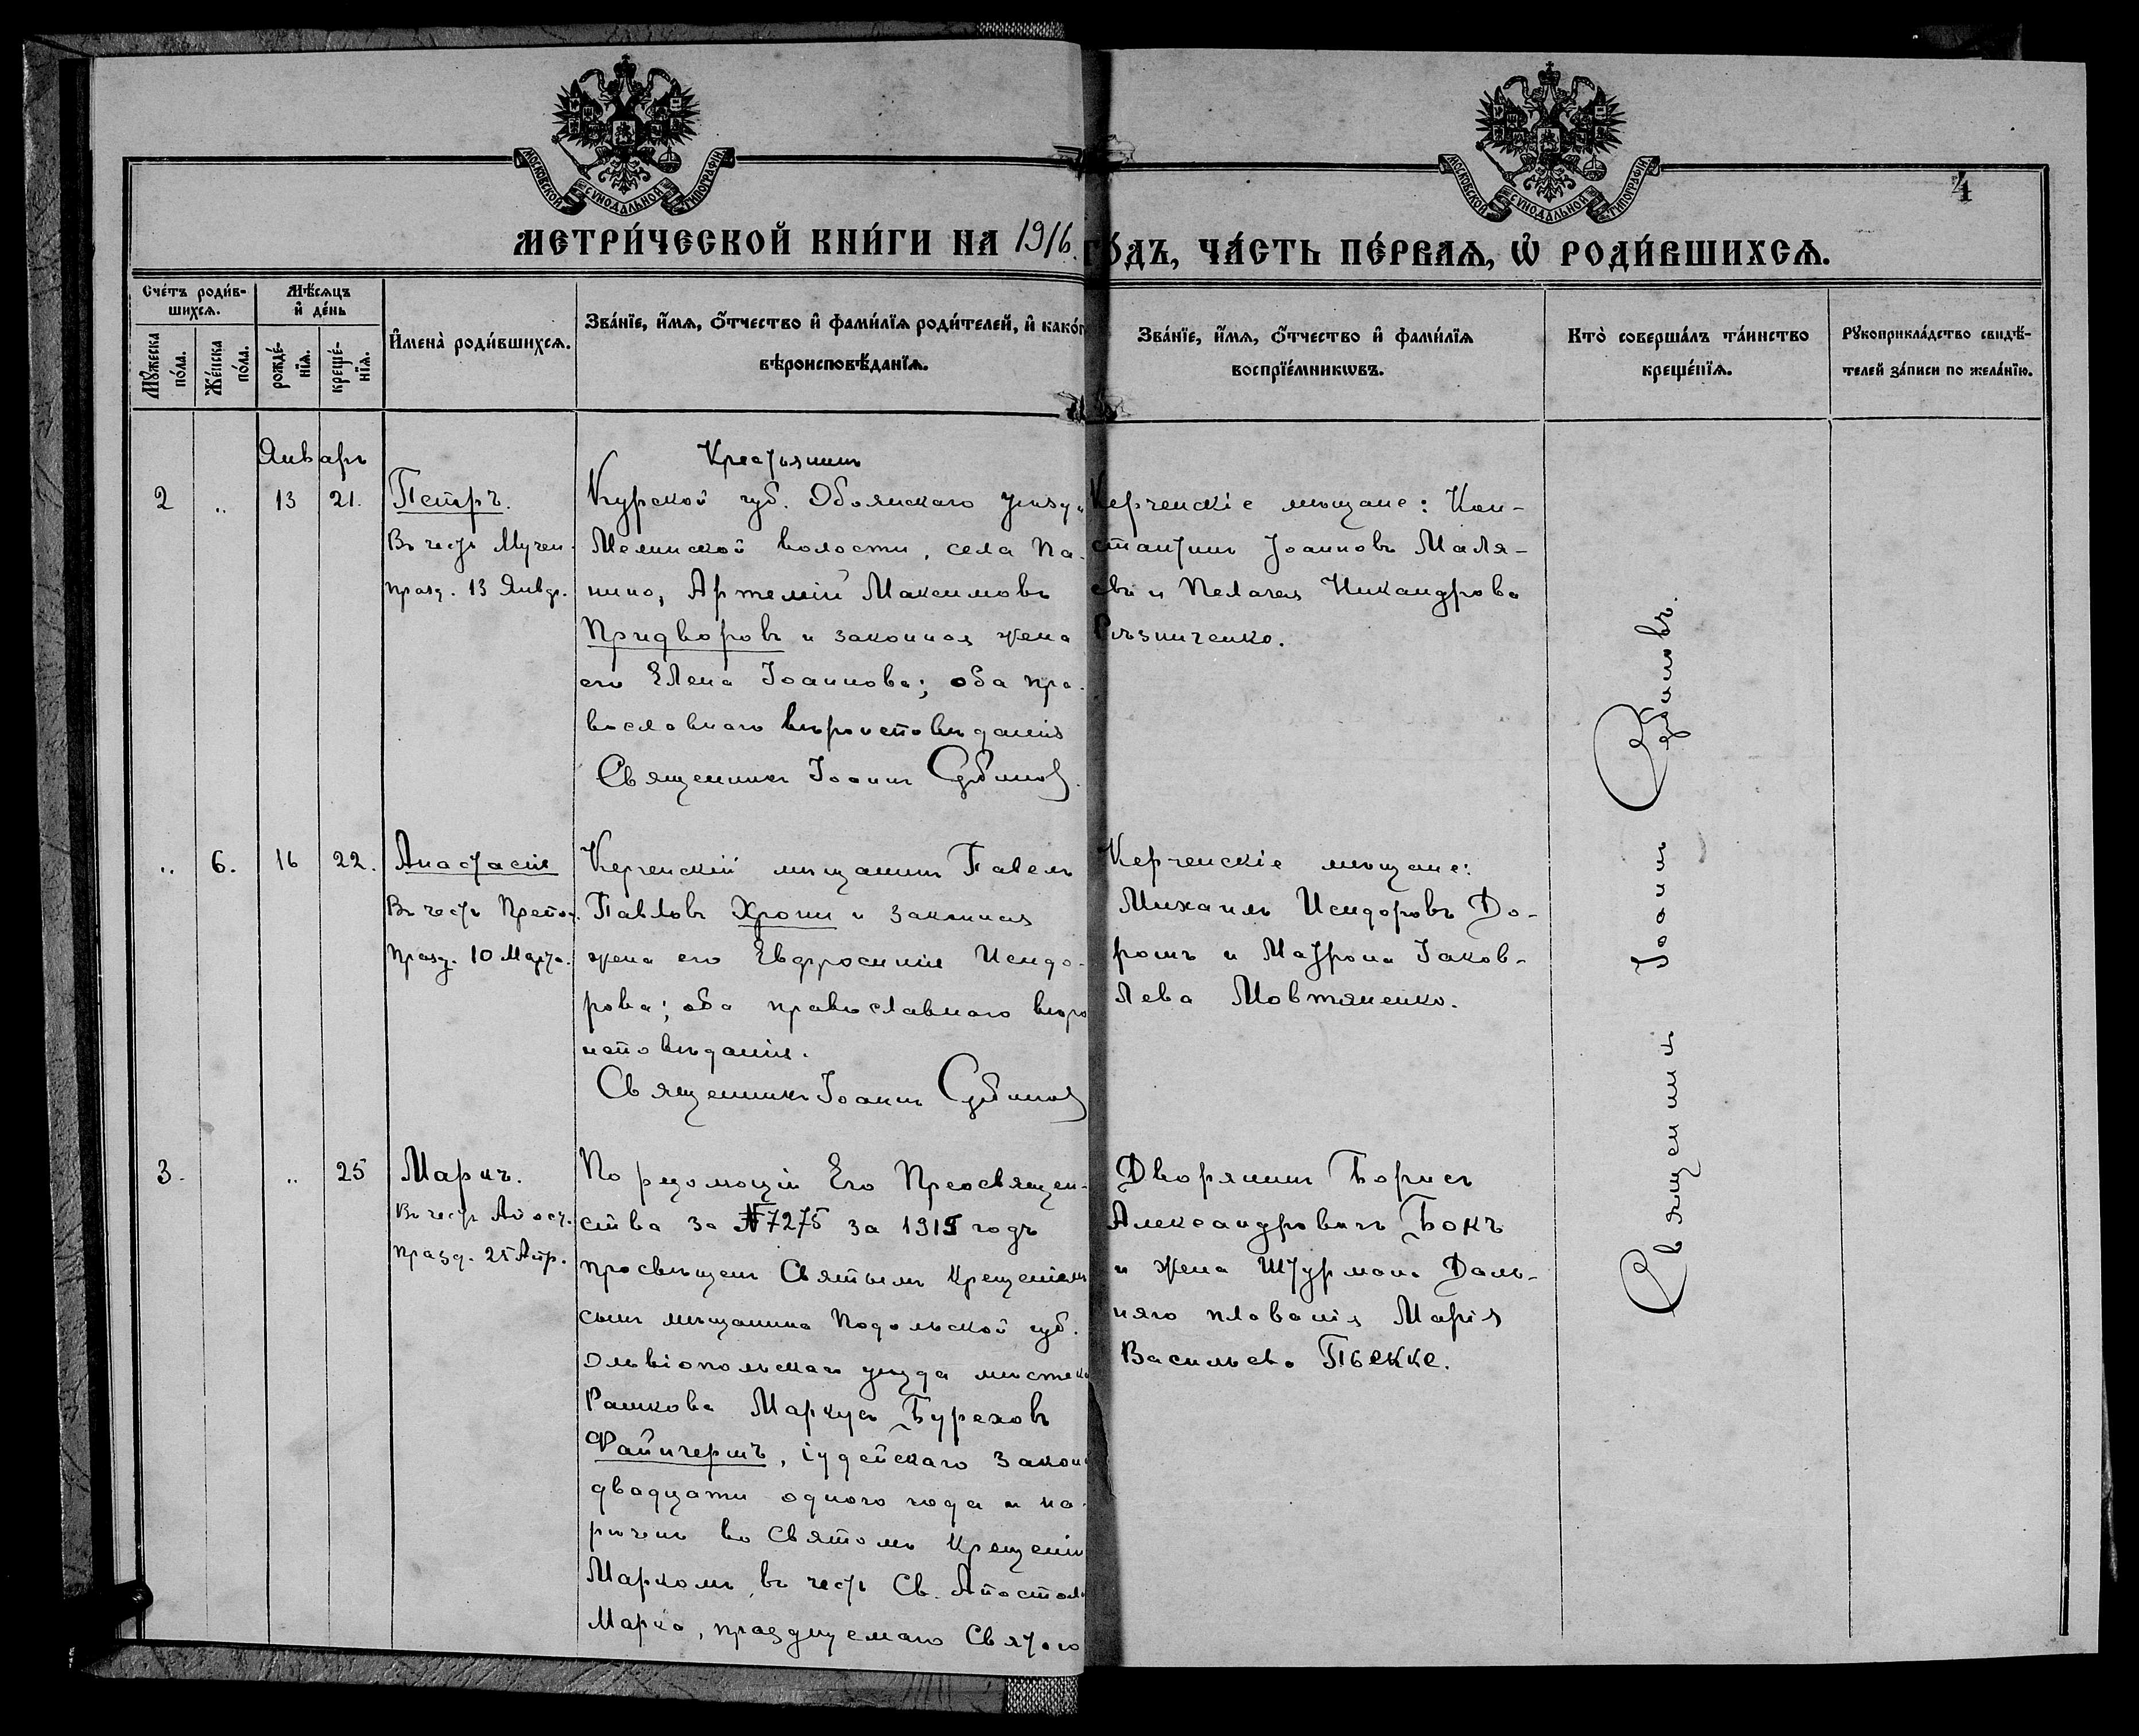 МОСКОВСКОЙ СѴНОДАЛЬНОЙ ТИПОГРАФІИ
МОСКОВСКОЙ СѴНОДАЛЬНОЙ ТИПОГРАФІИ
4
МЕТРИ́ЧЕСКОЙ КНИ́ГИ НА 1916 ГО́ДЪ, ЧА́СТЬ ПЕ́РВАѦ, Ѡ҆ РОДИ́ВШИХСѦ.
Сче́тъ роди́в-
шихсѧ.
Мꙋ́жеска по́ла.
Же́нска по́ла.
Мѣ́сѧцъ
и҆ де́нь
рожде́-
нїѧ.
креще́-
нїѧ.
И҆мена̀ роди́вшихсѧ.
Зва́нїе, и҆́мѧ, ѻ҆́тчество и҆ фами́лїѧ роди́телей, и҆ како́г
вѣроисповѣ́данїѧ.
Зва́нїе, и҆́мѧ, ѻ҆́тчество и҆ фами́лїѧ
воспрїе́мникѡвъ.
Кто̀ соверша́лъ та́инство
креще́нїѧ.
Рꙋкоприкла́дство свидѣ́-
телей за́писи по жела́нїю.
Январь
2 „ 13 21.
Петръ.
Въ честь Мучен.
празд. 13 Янвр.
Крестьянинъ
Курской губ. Обоянскаго уѣзда
волости, села Па-
нино, Артемій Максимовъ
Придворовъ и законная жена
его Елена Іоаннова; оба пра-
вославнаго вѣроисповѣданія
Священникъ Іоаннъ
Керченскіе мѣщане: Кон-
стантинъ Іоанновъ Маля-
евъ и Пелагея Никандрова
Рѣзниченко.
„ 6. 16 22.
Анастасія
Въ честь Препод.
празд. 10 Марта.
Керченскій мѣщанинъ Павелъ
Павловъ Хрони и законная
жена его Евфросинія Исидо-
рова; оба православнаго вѣро
исповѣданія.
Священникъ Іоаннъ
Керченскіе мѣщане:
Михаилъ Исидоровъ До-
рошъ и Матрона Іаков-
лева Мовтяненко.
3. „ 25
Маркъ.
Въ честь Апост.
празд. 25 Апр.
По резолюціи Его Преосвящен-
ства за № 7275 за 1915 годъ
просвѣщенъ Святымъ Крещеніемъ
сынъ мѣщанина Подольской губ.
Ольвіопольскаго уѣзда мѣстечка
Рашкова Маркусъ Бурехов
Файнгерштъ, іудейскаго закона
двадцати одного года и на-
реченъ во Святомъ Крещеніи
Маркомъ, въ честь Св. Апостола
Марка, празднуемаго Святою
Дворянинъ Борисъ
Александровичъ Бокъ
и жена Штурмана Даль-
няго плаванія Марія
Васильева Пьекке.
Священникъ Іоаннъ